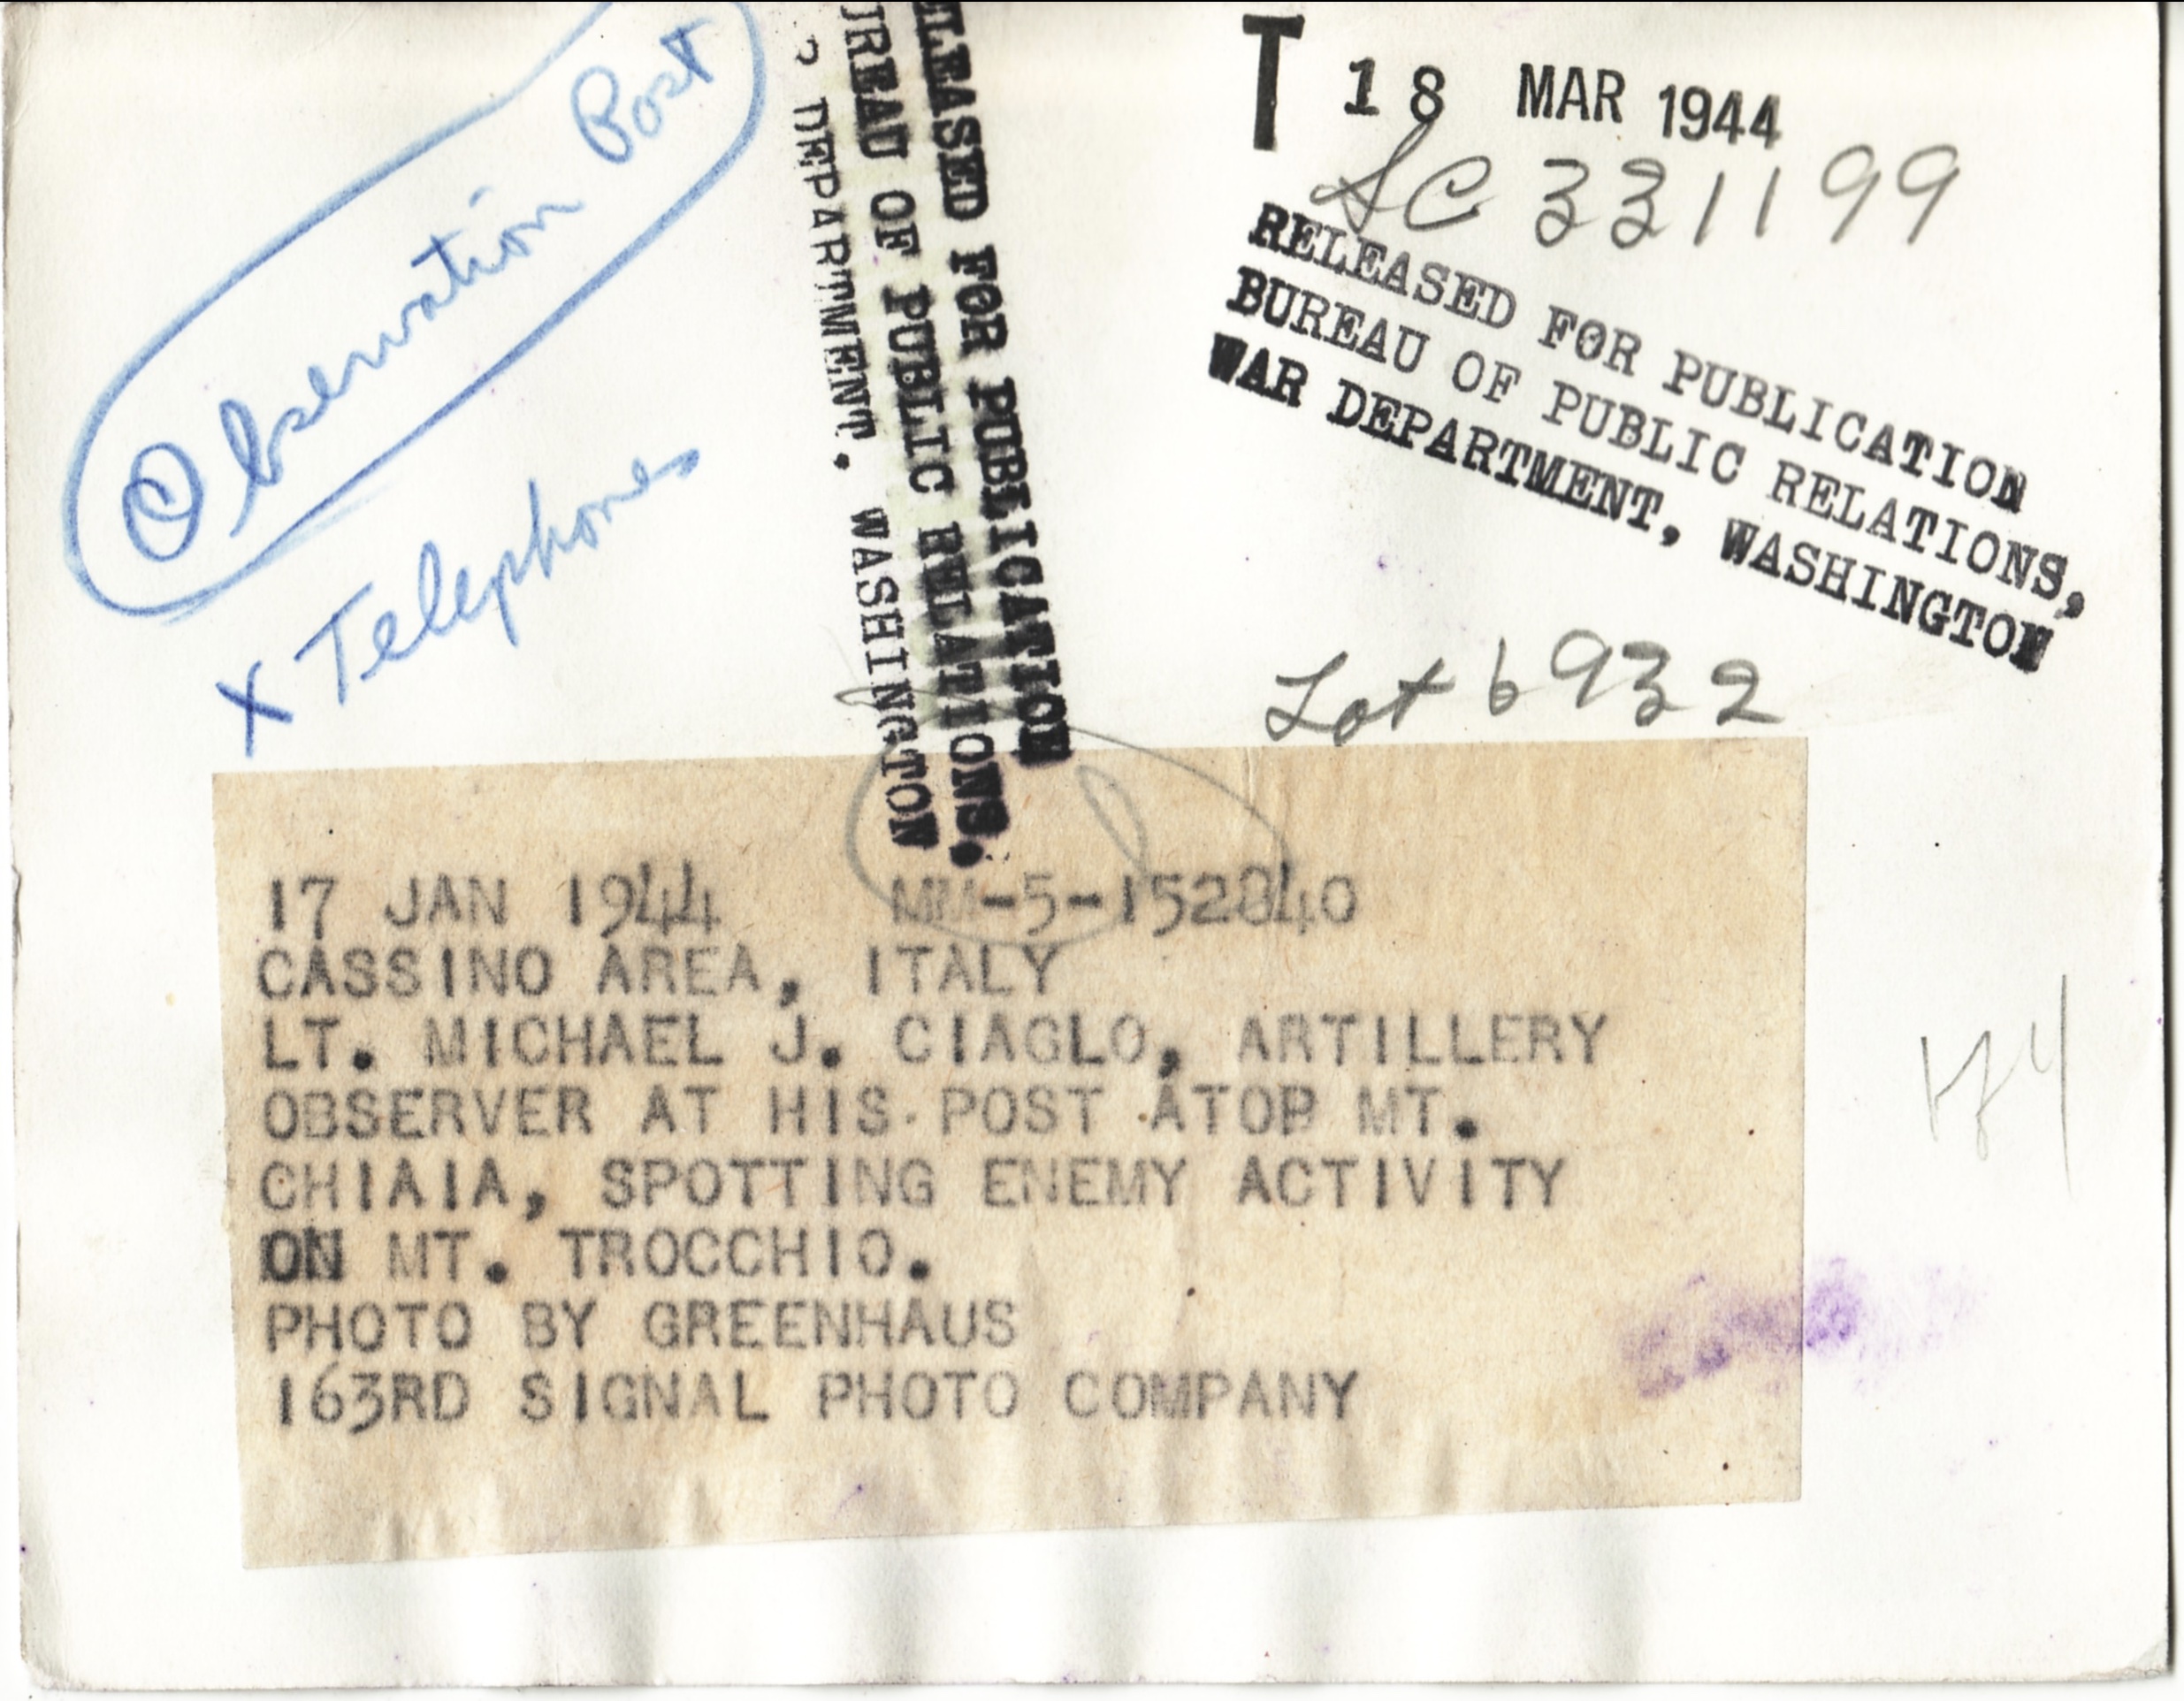 Observation Post
X Telephones
RELEASED FOR PUBLICATION
BUREAU OF PUBLIC RELATIONS,
DEPARTMENT, WASHINGTON
T 18 MAR 1944
SC 331199
RELEASED FOR PUBLICATION
BUREAU OF PUBLIC RELATIONS,
WAR DEPARTMENT, WASHINGTON
Lot 6932
17 JAN 1944 MM-5-152840
CASSINO AREA, ITALY
LT. MICHAEL J. CIAGLO, ARTILLERY
OBSERVER AT HIS POST ATOP MT.
CHIAIA, SPOTTING ENEMY ACTIVITY
ON MT. TROCCHIO.
PHOTO BY GREENHAUS
163RD SIGNAL PHOTO COMPANY